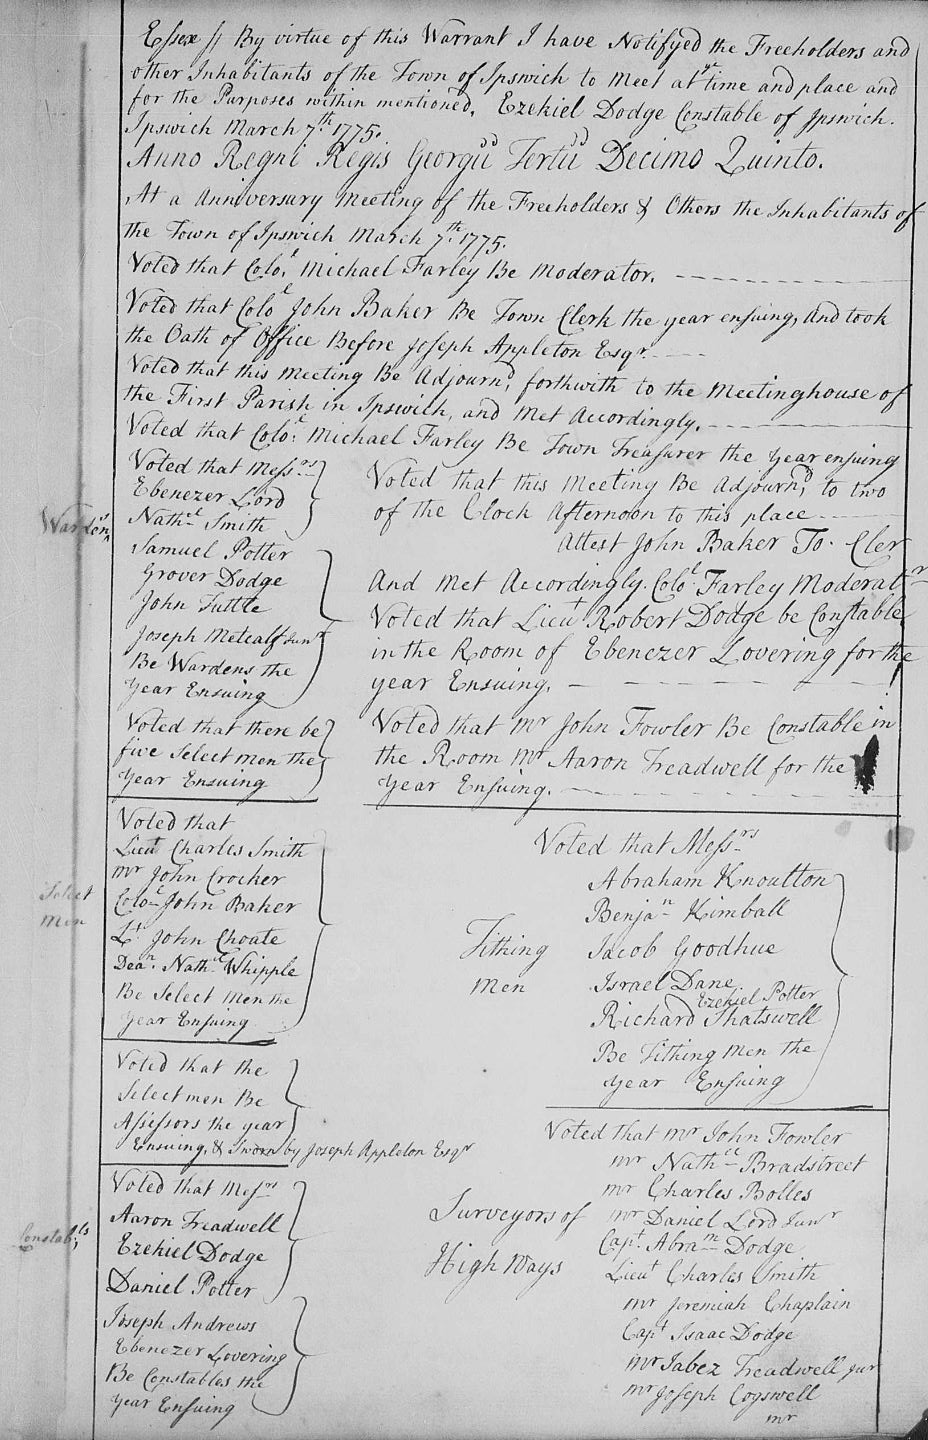 Essex ss By virtue of this Warrant I have Notifyed the Freeholders and
other Inhabitants of the Town of Ipswich to meet at ye time and place and
for the Purposes within mentioned. Ezekiel Dodge Constable of Ipswich.
Ipswich March 7th 1775.
Anno Regni Regis Georgii Tertii Decimo Quinto.
At a Anniversary Meeting of the Freeholders & Others the Inhabitants of
the Town of Ipswich March 7th 1775.
Voted that Colol Michael Farley Be Moderator.
Voted that Colol John Baker Be Town Clerk the year ensuing, and took
the Oath of Office Before Joseph Appleton Esqr.
Voted that this meeting Be Adjournd, forthwith to the Meetinghouse of
the First Parish in Ipswich, and Met Accordingly.
Voted that Colol Michael Farley Be Town Treasurer the year ensuing
Wardens
Voted that Messrs
Ebenezer Lord
Nathel Smith
Samuel Potter
Grover Dodge
John Tuttle
Joseph Metcalf Junr
Be Wardens the
Year Ensuing
Voted that there be
five Select men the
Year Ensuing
Voted that this Meeting Be Adjournd, to two
of the Clock Afternoon to this place
Attest John Baker To. Cler
And Met Accordingly. Colol Farley Moderatr
Voted that Lieut Robert Dodge be Constable
in the Room of Ebenezer Lovering for the
year Ensuing.
Voted that Mr John Fowler Be Constable in
the Room Mr Aaron Treadwell for the
Year Ensuing.
Select
Men
Voted that
Lieut Charles Smith
Mr John Crocker
Colol John Baker
Lt John Choate
Dean Nathl Whipple
Be Select Men the
Year Ensuing
Voted that the
Selectmen Be
Assessors the year
Ensuing, & Sworn by Joseph Appleton Esqr
Constabls
Voted that Messrs
Aaron Treadwell
Ezekiel Dodge
Daniel Potter
Joseph Andrews
Ebenezer Lovering
Be Constables the
Year Ensuing
Tithing
men
Voted that Messrs
Abraham Knoulton
Benjan Kimball
Jacob Goodhue
Israel Dane
Ezekiel Potter
Richard Shatswell
Be Tithing Men the
year Ensuing
Surveyors of
High Ways
Voted that Mr John Fowler
Mr Nathel Bradstreet
Mr Charles Bolles
Mr Daniel Lord Junr
Capt Abram Dodge
Lieut Charles Smith
Mr Jeremiah Chaplain
Capt Isaac Dodge
Mr Jabez Treadwell Jur
Mr Joseph Cogswell
Mr